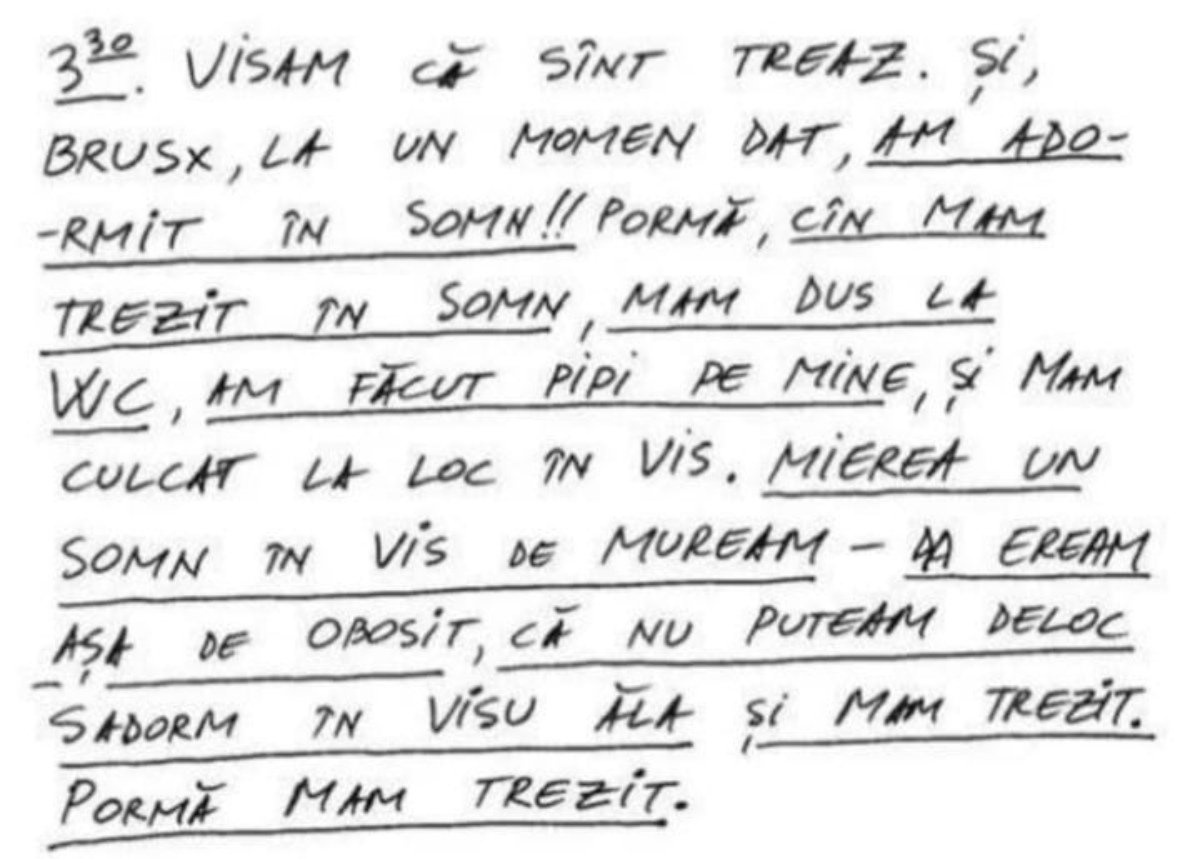 3³⁰. VISAM CĂ SÎNT TREAZ. ȘI,
BRUSX, LA UN MOMEN DAT, AM ADO-
-RMIT ÎN SOMN!! PORMĂ, CÎN MAM
TREZIT ÎN SOMN, MAM DUS LA
WC, AM FĂCUT PIPI PE MINE, ȘI MAM
CULCAT LA LOC ÎN VIS. MIEREA UN
SOMN ÎN VIS DE MUREAM – DA EREAM
AȘA DE OBOSIT, CĂ NU PUTEAM DELOC
SADORM ÎN VISU ĂLA ȘI MAM TREZIT.
PORMĂ MAM TREZIT.